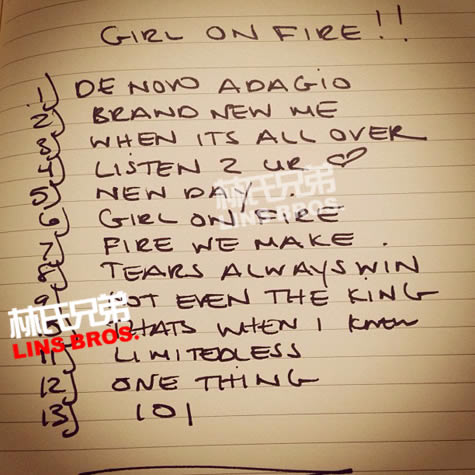 GIRL ON FIRE!!
1) DE NOVO ADAGIO
2) BRAND NEW ME
3) WHEN ITS ALL OVER
4) LISTEN 2 UR ♡
5) NEW DAY.
6) GIRL ON FIRE
7) FIRE WE MAKE.
8) TEARS ALWAYS WIN
9) NOT EVEN THE KING
THATS WHEN I KNEW
11) LIMITEDLESS
12) ONE THING
13) 101
林氏兄弟
LINS BROS.
林氏兄弟
LINS BROS.